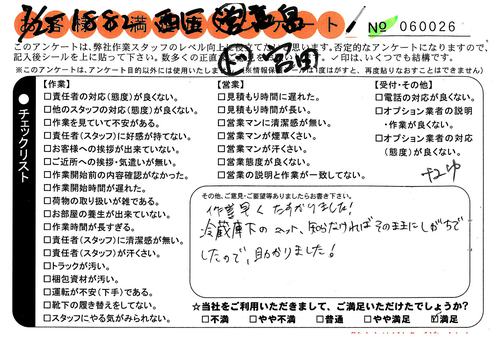 7/28 1882 西区
お客様満足アンケート
No 060026
このアンケートは、弊社作業スタッフのレベル向上に役立てたいと思います。否定的なアンケートになりますので、
記入後シールを上に貼って下さい。
✓印は、いくつでも結構です。
※このアンケートは、アンケート目的以外には使用いたしません。
※個人情報保護シールは1度はがすと、再度貼りなおすことはできません。
●チェックリスト
【作業】
□責任者の対応(態度)が良くない。
□他のスタッフの対応(態度)が良くない。
□作業を見ていて不安がある。
□責任者(スタッフ)に好感が持てない。
□お客様への挨拶が出来ていない。
□ご近所への挨拶・気遣いが無い。
□作業開始前の内容確認がなかった。
□作業開始時間が遅れた。
□荷物の取り扱いが雑である。
□お部屋の養生が出来ていない。
□作業時間が長すぎる。
□責任者(スタッフ)に清潔感が無い。
□責任者(スタッフ)が汗くさい。
□トラックが汚い。
□梱包資材が汚い。
□運転が不安(下手)である。
□靴下の履き替えをしてない。
□スタッフにやる気がみられない。
【営業】
□見積もり時間に遅れた。
□見積もり時間が長い。
□営業マンに清潔感が無い。
□営業マンが煙草くさい。
□営業マンが汗くさい。
□営業態度が良くない。
□営業の説明と作業が一致してない。
【受付・その他】
□電話の対応が良くない。
□オプション業者の説明
・作業が良くない。
□オプション業者の対応
(態度)が良くない。
その他、ご意見・ご要望等ありましたらお書き下さい。
作業早くたすかりました!
冷蔵庫下のマット、知らなければそのままにしがちで
したので、助かりました!
☆当社をご利用いただきまして、ご満足いただけたでしょうか?
□不満 □やや不満 □普通 □やや満足 ☑満足